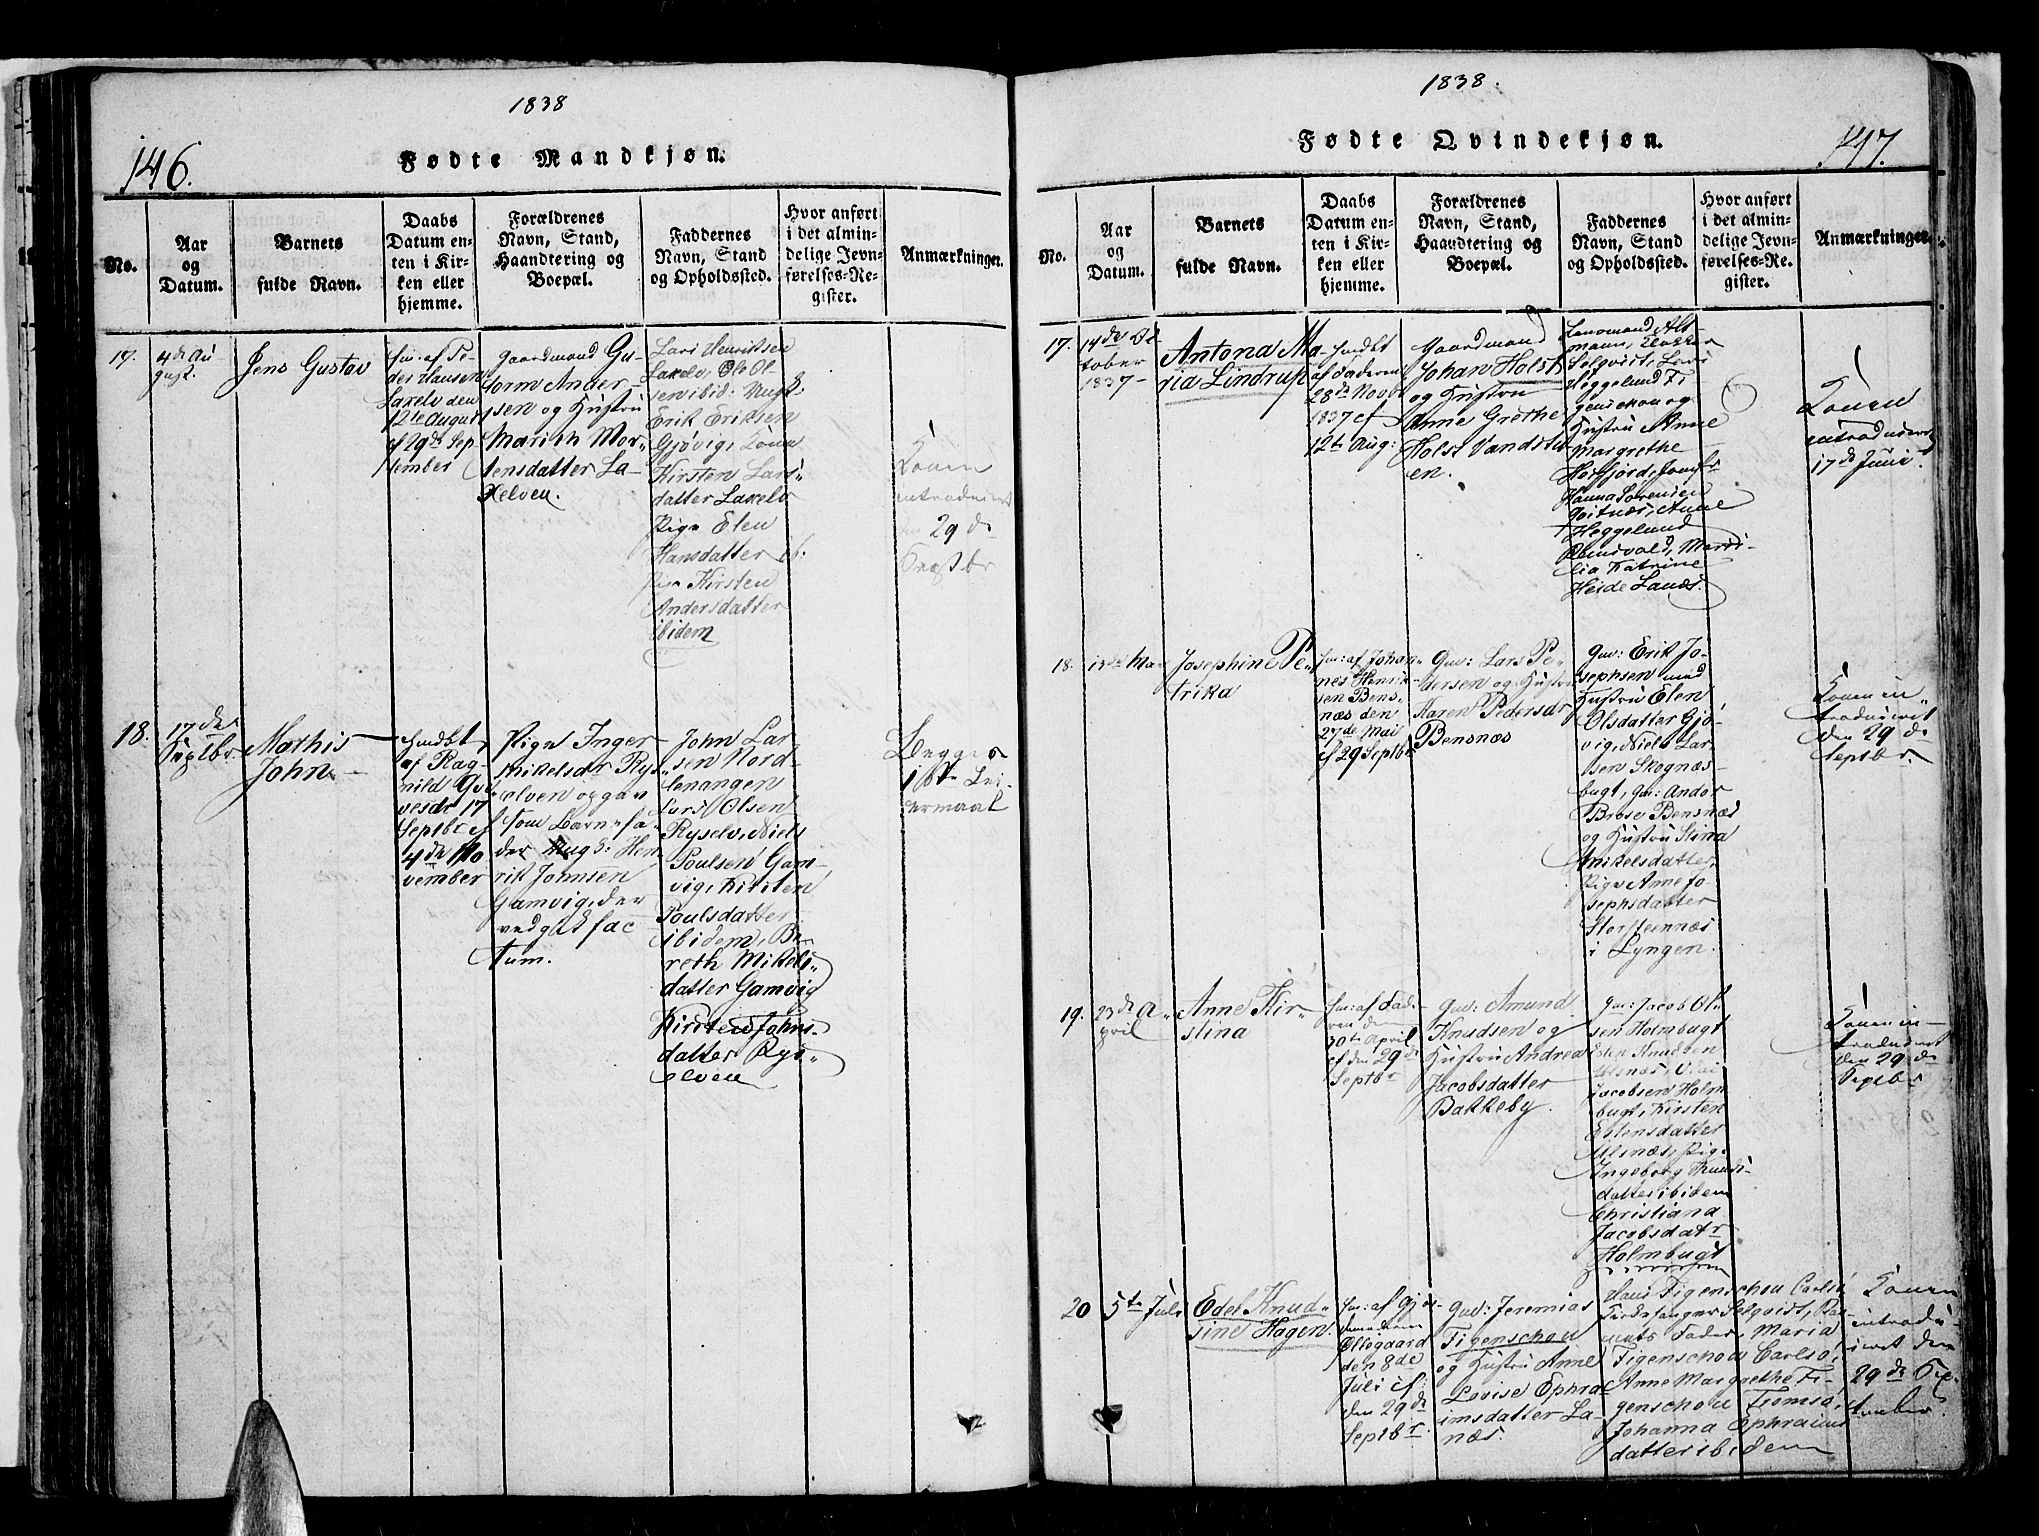 1838
146.
Fødte Mandkjøn.
No.
Aar
og
Datum.
Barnets
fulde Navn.
Daabs
Datum en-
ten i Kir-
ken eller
hjemme.
Forældrenes
Navn, Stand,
Haandtering og
Boepæl.
Faddernes
Navn, Stand
og Opholdssted.
Hvor anført
i det almin-
delige Jevn-
førelses-Re-
gister.
Anmærkninger.
17.
4de Au
gust.
Jens Gustav
af Pe-
der Hansen
Laxelv den
12te August
cf 29de Sep
tember
Gaardmand Gu-
torm Ander-
sen og Hustru
Marith Mor-
tensdatter La-
xelven.
Lars Henriksen
Laxelv, Ole Ol
sen ibid: Ungk:
Erik Eriksen
Gjøvig, Kona
Kirsten Lars
datter Laxelv
Pige Elen
Hansdatter ib.
Pige Kirsten
Andersdatter
ibidem
Konen
introduceret
29de
Septbr
18.
17de
Septbr
Mathis
John
hmdbt
af Rag-
nild Gu
vesdr 17
Septbr cf
4de No
vember
Pige Inger
Mikelsdr Rys-
elven opgav
som Barnefa-
der Ungk: Hen
rik Johnsen
Gamvig, der
vedgik fac
tum.
John Lar-
sen Nord-
lenangen
Lars Olsen
Ryselv, Niels
Poulsen Gam-
vig, Kirsten
Poulsdatter
ibidem, Be-
reth Mikels-
datter Gamvig
Kirsten Johns-
datter Rys-
elven
Begges
1ste Lei-
ermaal
1838.
147.
Fødte Qvindekjøn.
No.
Aar
og
Datum.
Barnets
fulde Navn.
Daabs
Datum en-
ten i Kir-
ken eller
hjemme.
Forældrenes
Navn, Stand,
Haandtering og
Boepæl.
Faddernes
Navn, Stand
og Opholdssted.
Hvor anført
i det almin-
delige Jevn-
førelses-Re-
gister.
Anmærkninger.
17.
14de Oc
tober
1837
Antona Ma-
ria Lindrup
hmdbt
af Faderen
28de Novbr
1837 cf
12te Aug:
Gaardmand
Johan Holst
og Hustru
Anne Grethe
Holst Vandstu
en.
Lensmand Alt-
mann, Klokker
Selqvist, Lovis
Heggelund Ti
genschou og
Hustru Anne
Margrethe
Hanna Sørensen
Heggelund
Katrine
Heide Lanæs.
Konen
introduceret
17de Juni
18.
Josephine Pe-
trika
hm: af Johan-
nes Henrik-
sen Bens-
næs den
27de Mai
cf 29 Septbr
Gm: Lars Pe-
dersen og Hustru
Karen Pedersdr
Bensnæs
Gm: Erik Jo-
sephsen med
Hustru Elen
Olsdatter Gjø-
vig, Niels Lar-
sen Skognæs-
bugt, Gm: Andor
Brose Bensnæs
og Hustru Stina
Mikelsdatter,
Pige Anne Jo-
sephsdatter
Storsteennæs
i Lyngen.
Konen in
troduceret
den 29de
Septbr.
19.
23de A-
pril
Anne Kir-
stina
hm: af Fad-
ren den
30te April
cf den 29de
Septbr
Gm: Amund
Knudsen og
Hustru Andrea
Jacobsdatter
Bakkeby.
Gm: Jacob Ol-
sen Holmbugt
Esten Knudsen
Ulsnæs, Olai
Jacobsen Holm
bugt, Kirsten
Estensdatter
Ulsnæs, Pige
Ingeborg Knuds-
datter ibidem
Christiana
Jacobsdatr
Holmbugt
Konen in-
troduceret
den 29de
Septbr
20
5te Juli
Edel Knud-
sine Hagen
hm: af Gjor-
demoderen
Oldgaard
den 8de
Juli cf:
den 29de
Septbr.
Gm: Jeremias
Tigenschou
og Hustru Anne
Lovise Ephra
imsdatter La-
næs.
Hans Tigenschou Carlsø
Selqvist, Bar
nets Fader, Maria
Tigenschou Carlsø,
Anne Margrethe Ti-
genschou Tromsø,
Johanna Ephraims
datter ibidem
Konen
introdu-
ceret den
29de Sep-
tember.